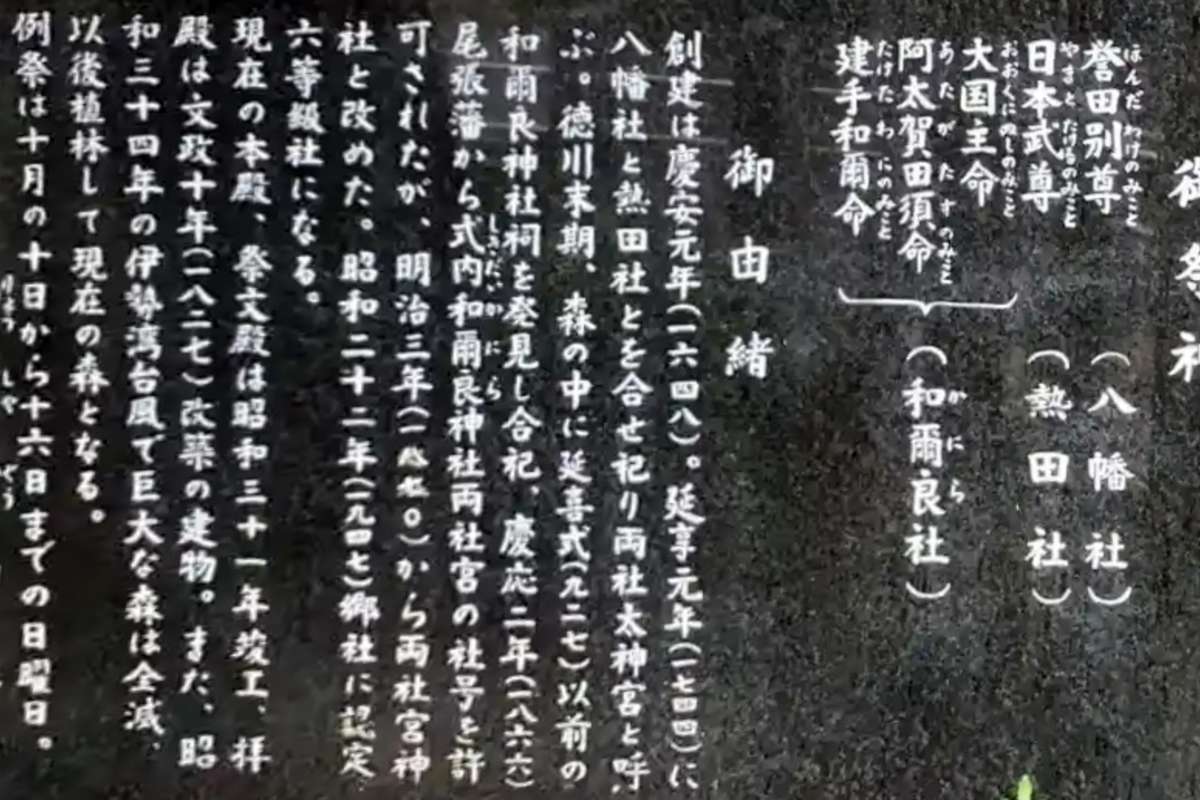 御祭神
誉田別尊 (八幡社)
ほんだわけのみこと
日本武尊 (熱田社)
やまとたけるのみこと
大国主命
おおくにぬしのみこと
阿太賀田須命 (和爾良社)
あたがたすのみこと かにら
建手和爾命
たけたわにのみこと
御由緒
創建は慶安元年(一六四八)。延享元年(一七四四)に
八幡社と熱田社とを合せ祀り両社太神宮と呼
ぶ。徳川末期、森の中に延喜式(九二七)以前の
和爾良神社祠を発見し合祀、慶応二年(一八六六)
尾張藩から式内和爾良神社両社宮の社号を許
しきだいかにら
可されたが、明治三年(一八七〇)から両社宮神
社と改めた。昭和二十二年(一九四七)郷社に認定
六等級社になる。
現在の本殿、祭文殿は昭和三十一年竣工、拝
殿は文政十年(一八二七)改築の建物。また、昭
和三十四年の伊勢湾台風で巨大な森は全滅、
以後植林して現在の森となる。
例祭は十月の十日から十六日までの日曜日。